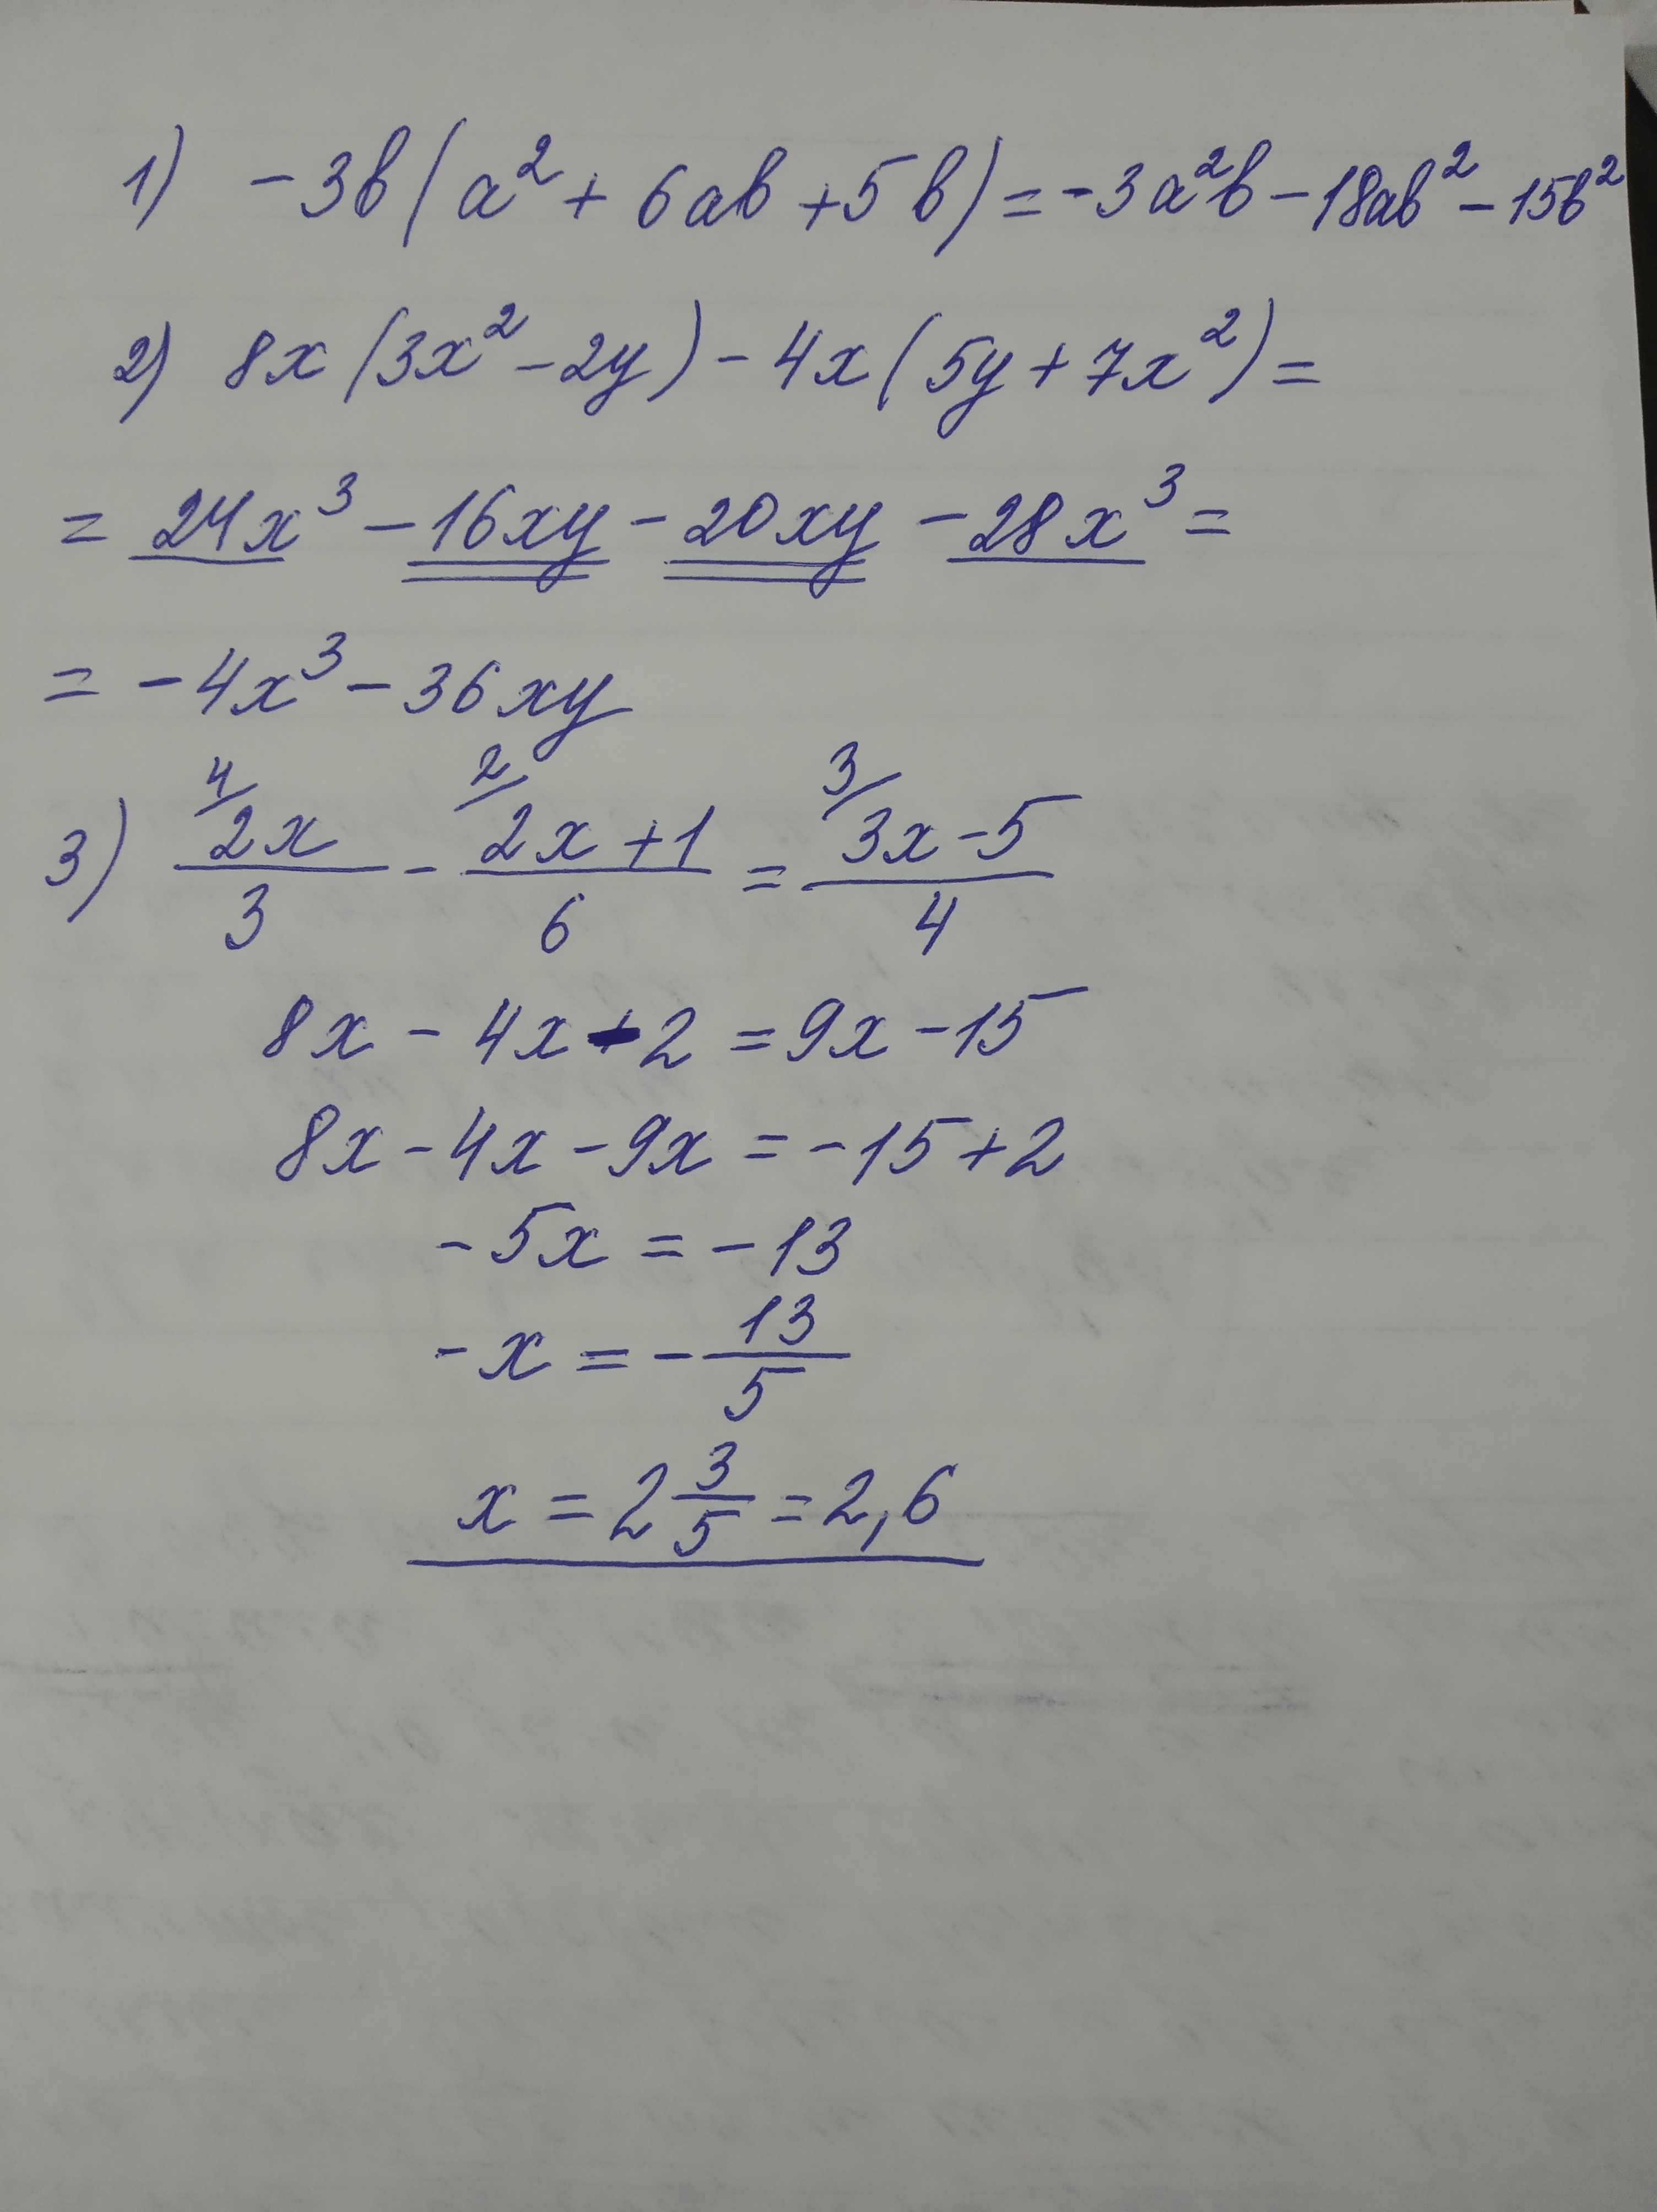 1) -3b(a²+6ab+5b)=-3a²b-18ab²-15b²
2) 8x(3x²-2y)-4x(5y+7x²)=
= 24x³-16xy-20xy-28x³=
= -4x³-36xy
3) ⁴/2x/3 - ²/2x+1/6 = ³/3x-5/4
8x-4x-2=9x-15
8x-4x-9x=-15+2
-5x=-13
-x=-13/5
x=2 3/5=2,6